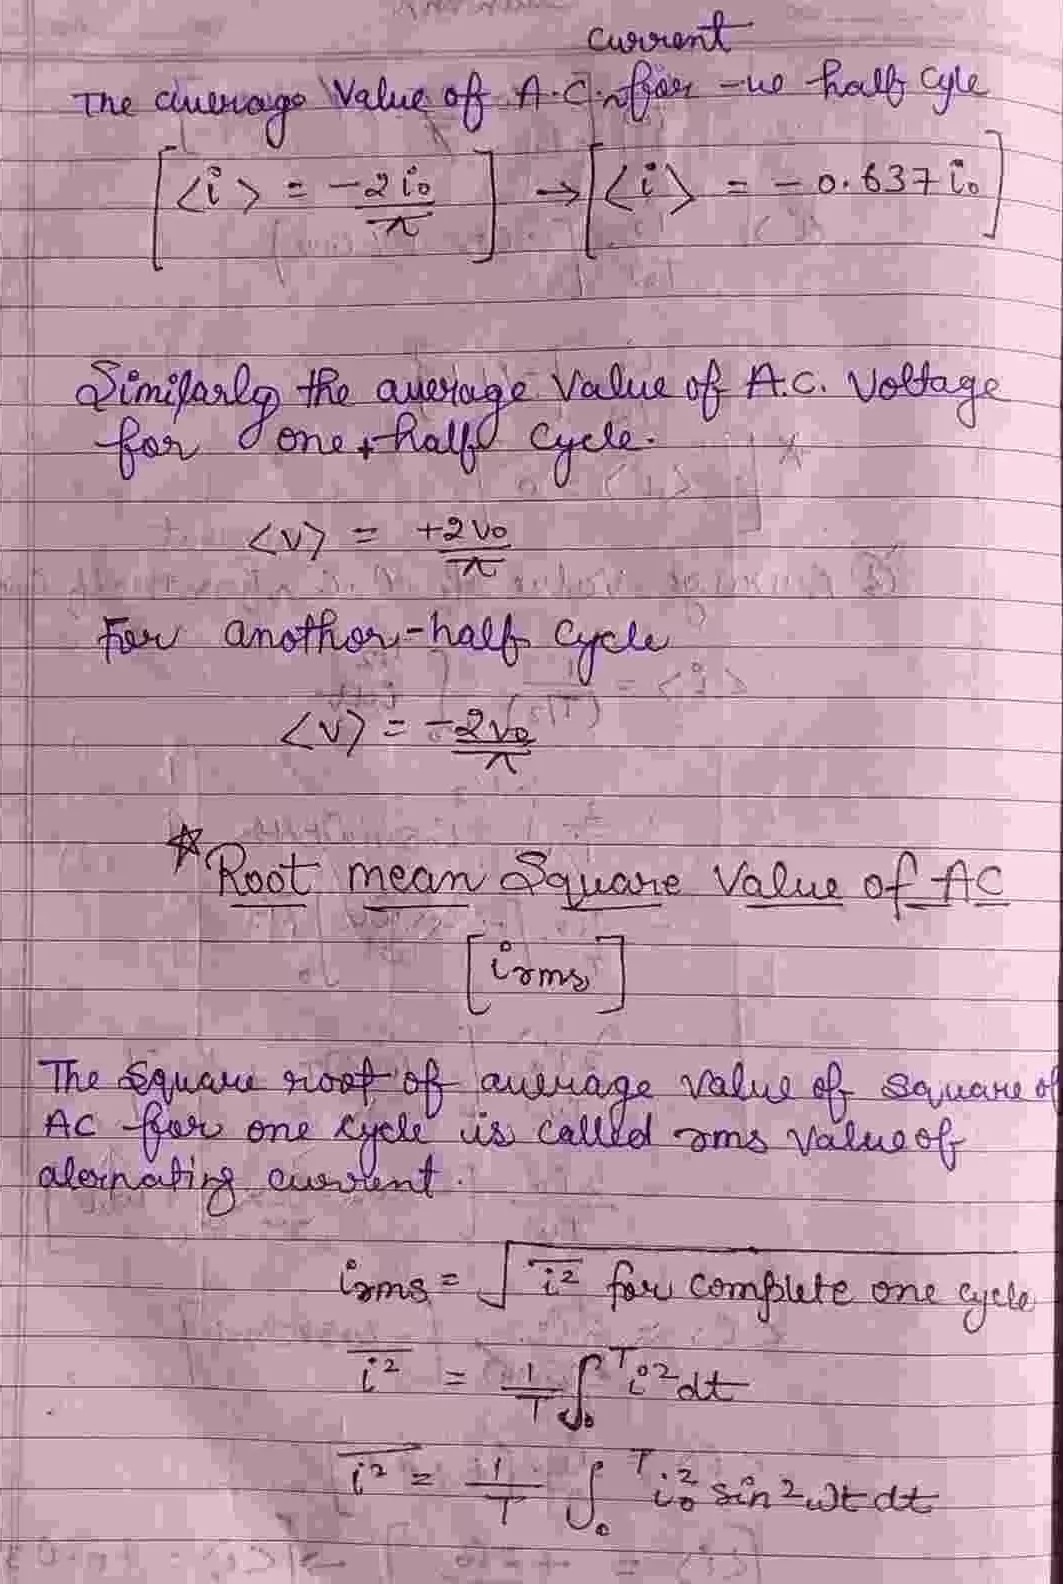 current
The average Value of A.C. for -ve half Cyle
[<i> = -2i₀/π] → [<i> = -0.637 i₀]
Similarly the average Value of A.C. Voltage
for one + half Cycle.
<v> = +2v₀/π
For another - half Cycle
<v> = -2v₀/π
☆ Root mean Square Value of AC
[irms]
The Square root of average value of square of
AC for one cycle is called rms Value of
alernating current.
irms = √(i̅²) for complete one cycle
i̅² = 1/T ∫₀ᵀ i² dt
i̅² = 1/T ∫₀ᵀ i₀² sin² ωt dt